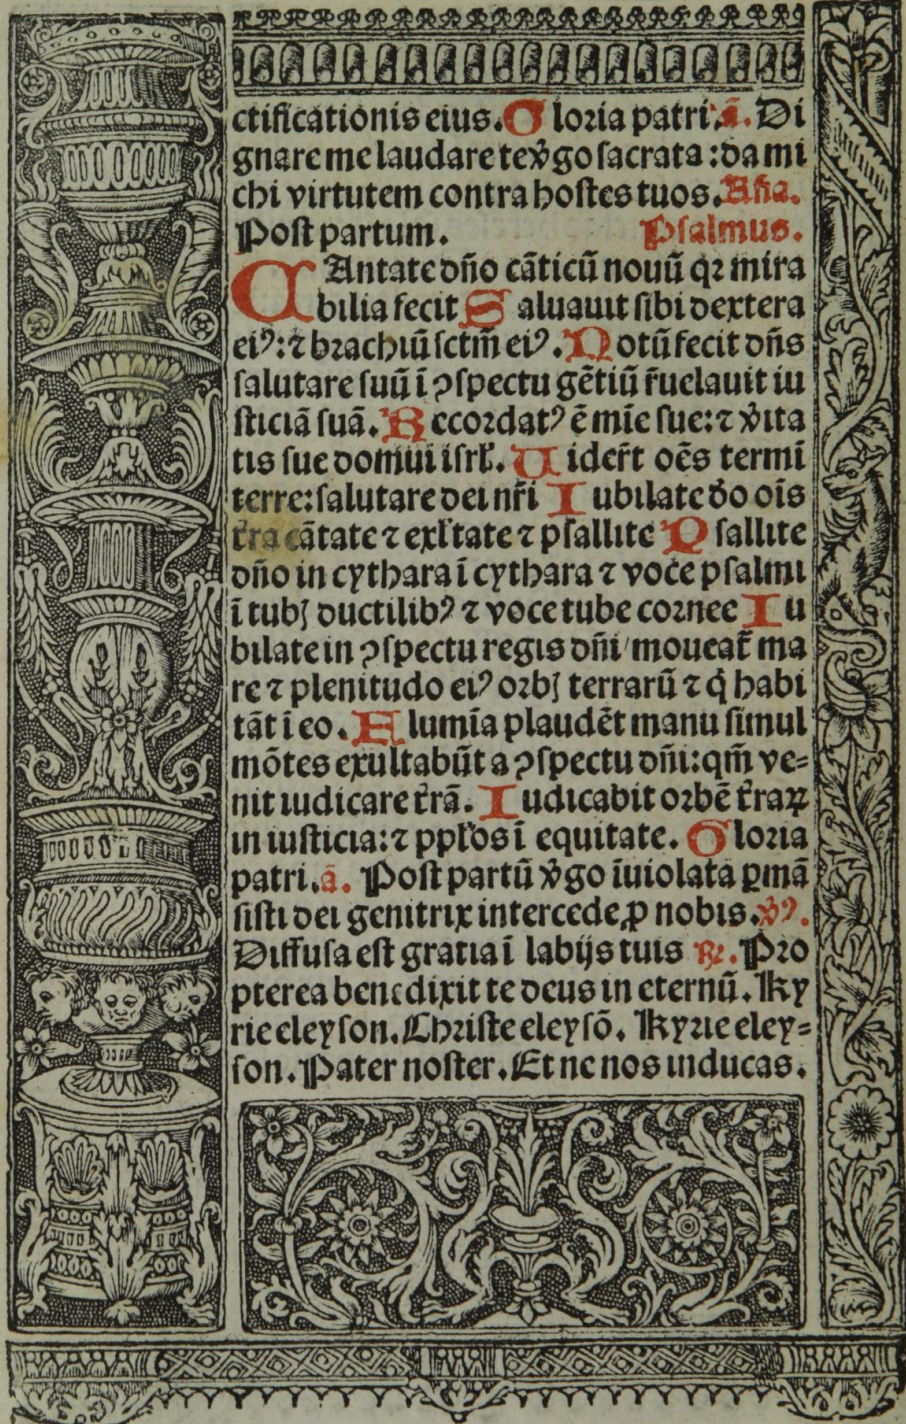 ctificationis eius. Gloria patri. ā. Di
gnare me laudare te v̓go sacrata : da mi
chi virtutem contra hostes tuos. Aña.
Post partum. Psalmus.
CAntate dño cāticū nouū qꝛ mira
bilia fecit Saluauit sibi dextera
eiꝰ: ⁊ brachiū sctm̄ eiꝰ. Notū fecit dñs
salutare suū ī ꝯspectu gētiū r̄uelauit iu
sticiā suā. Recordatꝰ ē mīe sue: ⁊ v̓ita
tis sue domui isrl̓. Uider̄t oēs termī
terre: salutare dei nr̄i Iubilate d̓o oīs
t̓ra cātate ⁊ exl̓tate ⁊ psallite Psallite
dño in cythara ī cythara ⁊ voce psalmi
ī tubꝭ ductilibꝰ ⁊ voce tube cornee Iu
bilate in ꝯspectu regis dñi / moueat̄ ma
re ⁊ plenitudo eiꝰ orbꝭ terrarū ⁊ q̓ habi
tāt ī eo. Flumīa plaudēt manu simul
mōtes exultabūt a ꝯspectu dñi: qm̄ ve⸗
nit iudicare t̓rā. Iudicabit orbē t̓raꝝ
in iusticia: ⁊ ppl̓os ī equitate. Gloria
patri. ā. Post partū v̓go īuiolata ꝑmā
sisti dei genitrix intercede ꝓ nobis. v̓ꝰ.
Diffusa est gratia ī labijs tuis ꝶ. Pro
pterea benedixit te deus in eternū. Ky
rie eleyson. Christe eleysō. Kyrie eley⸗
son. Pater noster. Et ne nos inducas.